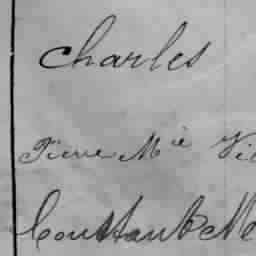 Charles
Pierre Mie Vic
Constant M